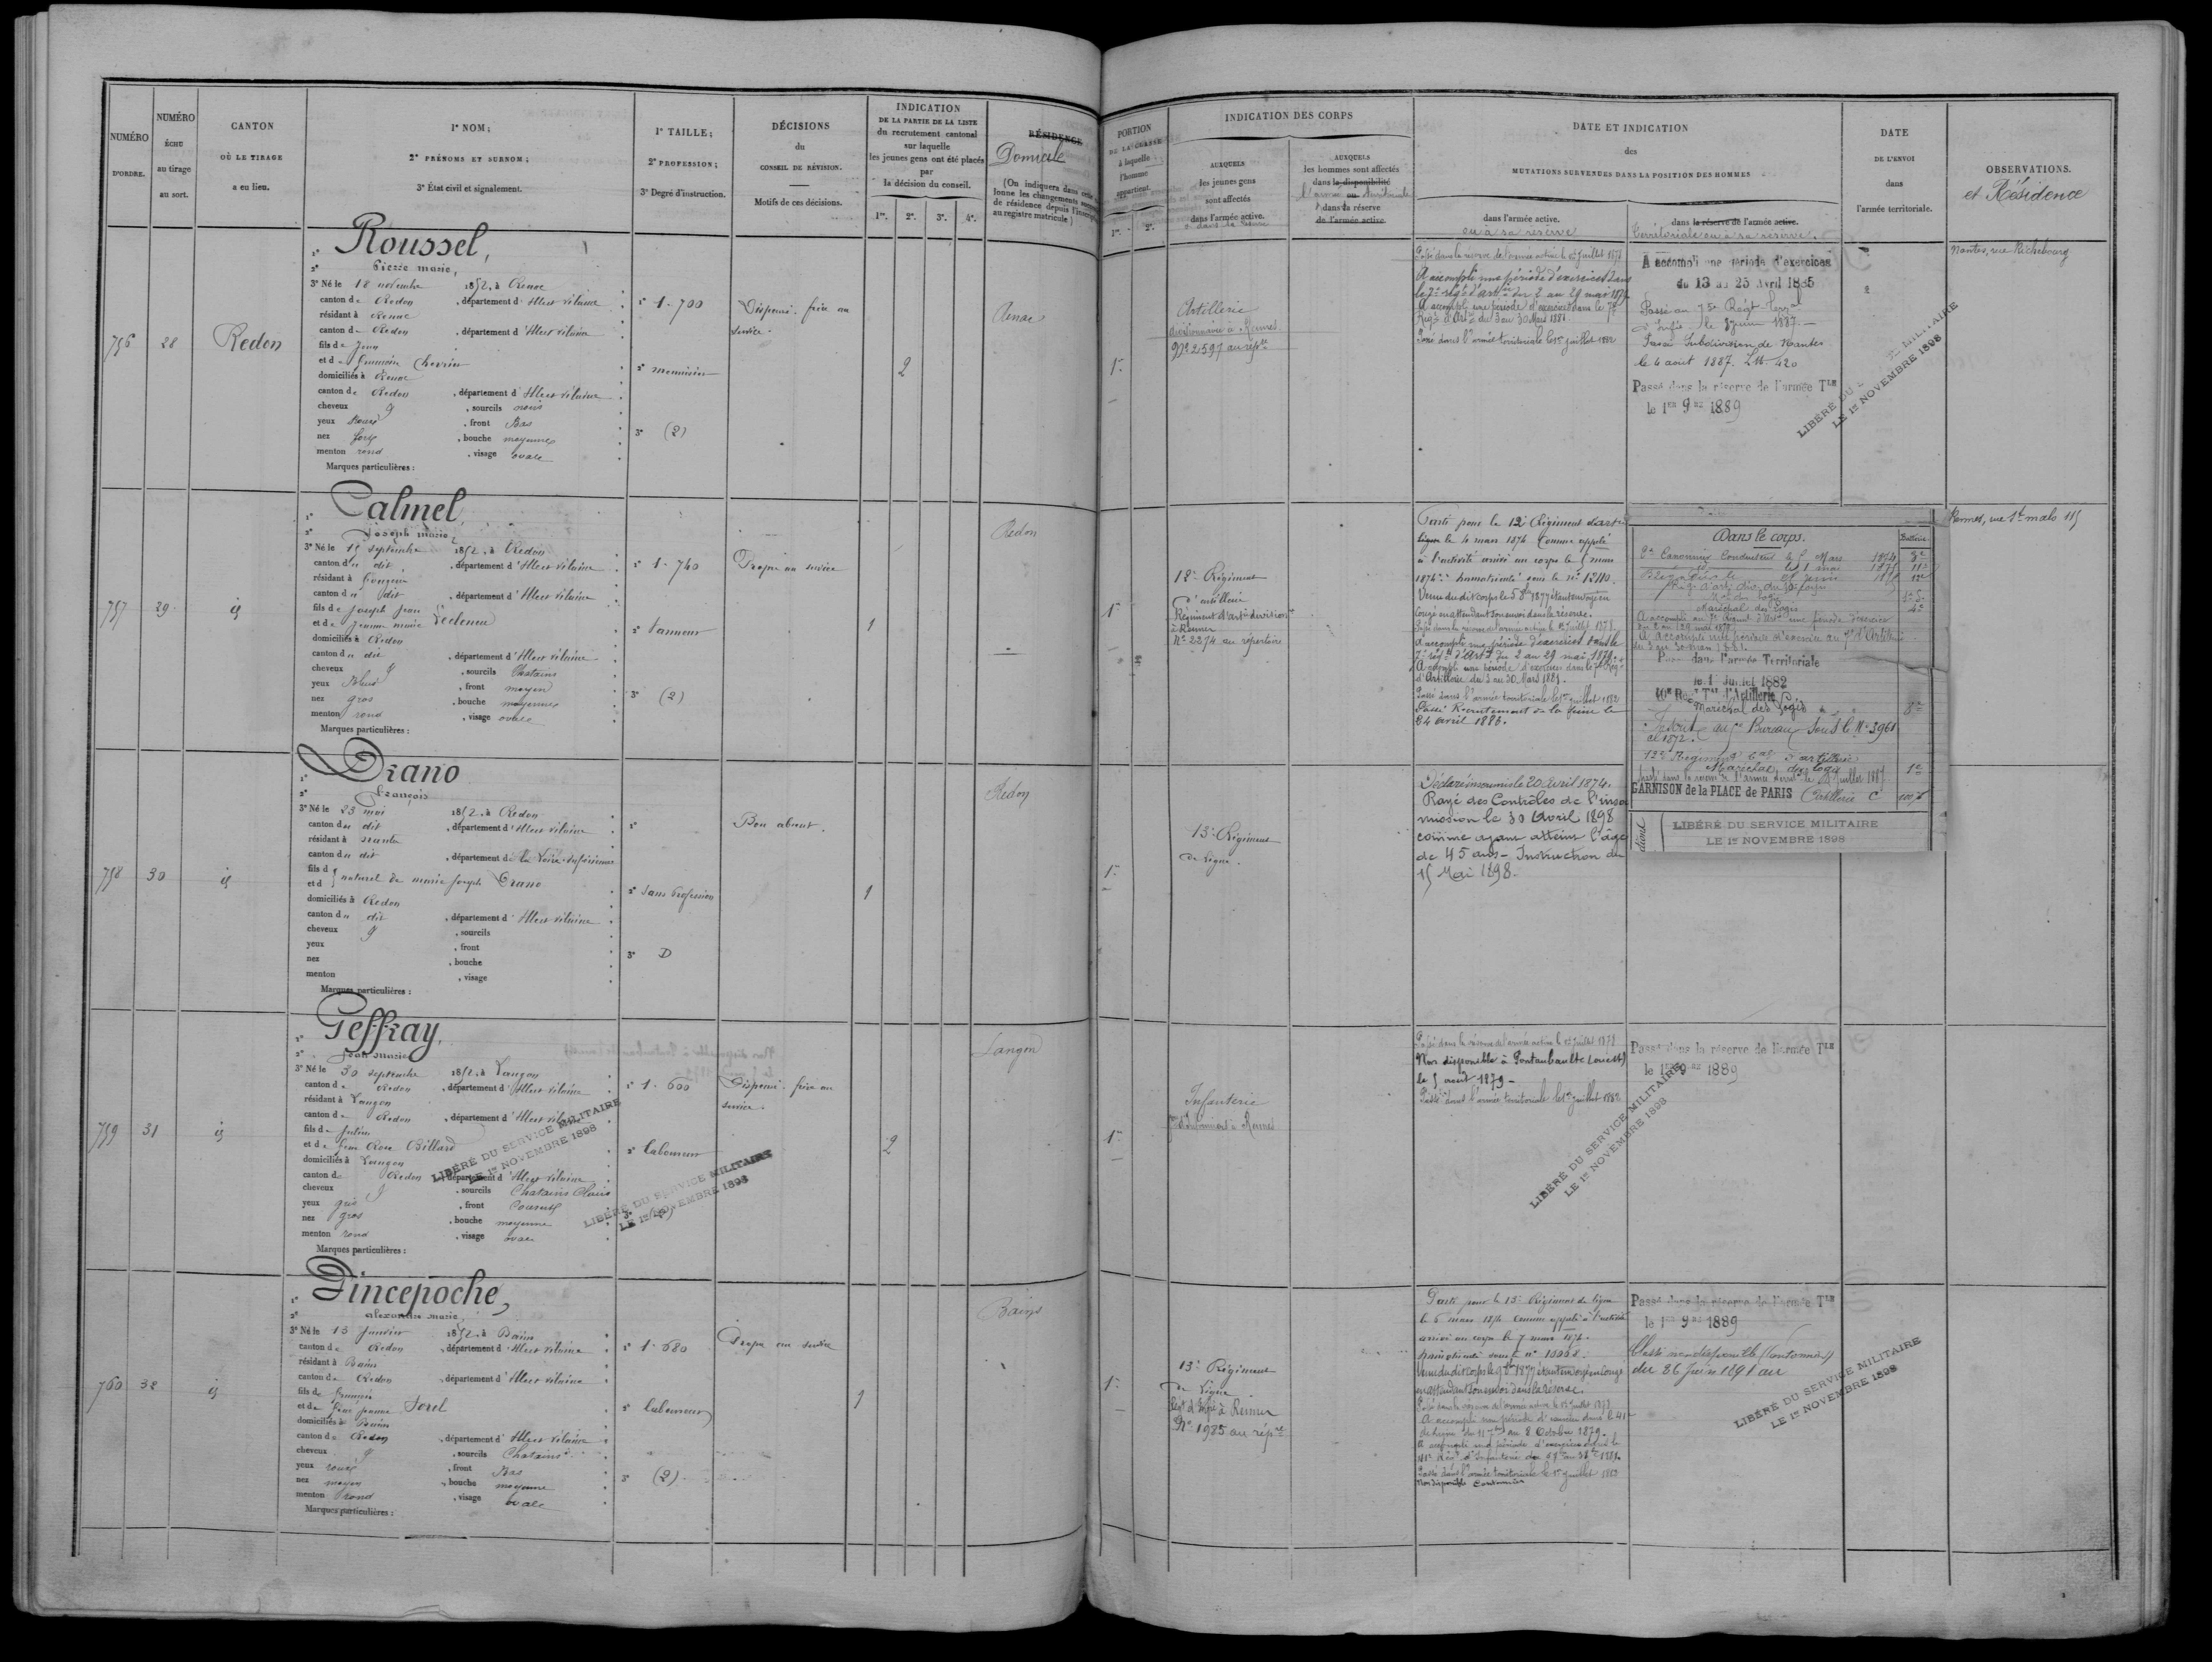 NUMÉRO
D'ORDRE.
NUMÉRO
échu
au tirage
au sort.
CANTON
OÙ LE TIRAGE
a eu lieu.
1º NOM;
2º PRÉNOMS ET SURNOM;
3º État civil et signalement.
1º TAILLE;
2º PROFESSION;
3º Degré d'instruction.
DÉCISIONS
du
CONSEIL DE RÉVISION.
Motifs de ces décisions.
INDICATION
DE LA PARTIE DE LA LISTE
du recrutement cantonal
sur laquelle
les jeunes gens ont été placés
par
la décision du conseil.
1re. 2e. 3e. 4e.
RÉSIDENCE
Domicile
(On indiquera dans cette
lonne les changements
de résidence depuis l'inscrip
au registre matricule)
PORTION
DE LA CLASSE
à laquelle
l'homme
appartient.
1re. 2e.
INDICATION DES CORPS
AUXQUELS
les jeunes gens
sont affectés
dans l'armée active.
AUXQUELS
les hommes sont affectés
dans la disponibilité
ou
dans la réserve
de l'armée active
DATE ET INDICATION
des
MUTATIONS SURVENUES DANS LA POSITION DES HOMMES
dans l'armée active.
ou à sa réserve
dans la réserve de l'armée active.
Territoriale ou à sa réserve.
DATE
DE L'ENVOI
dans
l'armée territoriale.
OBSERVATIONS.
et Résidence
756
28
Redon
1º Roussel,
2º Pierre marie,
3º Né le 18 novembre 1852, à Renac
canton de Redon, département d'Ille et Vilaine
résidant à Renac
canton de Redon, département d'Ille et Vilaine
fils de Jean
et de Chevrin
domiciliés à Renac
canton de Redon, département d'Ille et Vilaine
cheveux, sourcils noirs
yeux Roux, front Bas
nez fort, bouche moyenne
menton rond, visage ovale
Marques particulières :
1º 1.700
2º menuisier
3º (2)
Dispensé. frère au
service.
2
Renac
1re
Artillerie
divisionnaire à Rennes
Nº 2591 au repre
Passé dans la réserve de l'armée active le 1er Juillet 1878
A accompli une période d'exercices dans
le 7e régt d'artie du 2 au 29 mai 1879
A accompli une période d'exercices dans le 7e
Régt d'Artie du 3 au 30 Mars 1881.
Passé dans l'armée territoriale le 1er juillet 1882
A accompli une période d'exercices
du 13 au 25 Avril 1885
Passé au 75e Régt Terral
d'Infie le 8 juin 1887.
Passé Subdivision de Nantes
le 4 août 1887. 420
Passé dans la réserve de l'armée Tle
le 1er 9bre 1889
LIBÉRÉ DU
MILITAIRE
LE 1er NOVEMBRE 1898
Nantes, rue Richebourg
757
29
id
1º Calmel,
2º Joseph marie,
3º Né le 15 septembre 1852, à Redon
canton du dit, département d'Ille et Vilaine
résidant à Fougères
canton du dit, département d'Ille et Vilaine
fils de Joseph Jean
et de Jeanne marie Lecleneu
domiciliés à Redon
canton du dit, département d'Ille et Vilaine
cheveux, sourcils Chatains
yeux Bleus, front moyen
nez gros, bouche moyenne
menton rond, visage ovale
Marques particulières :
1º 1.740
2º Tanneur
3º (2)
Propre au service
1
Redon
1re
12e Régiment
d'artillerie
Régiment d'artie division
à Rennes
Nº 2274 au répertoire
Parti pour le 12e Régiment d'artie
le 4 mars 1874 Comme appelé
à l'activité arrivé au corps le 5 mars
1874. Immatriculé sous le nº 12110.
Venu du dit corps le 5 8bre 1877 étant en voyé en
Congé en attendant son envoi dans la réserve.
Passé dans la réserve de l'armée active le 1er Juillet 1878
A accompli une période d'exercices dans le
7e régt d'Artie du 2 au 29 mai 1879.
A accompli une période d'exercices dans le 7e Régt
d'Artillerie du 3 au 30 Mars 1881.
Passé dans l'armée territoriale le 1er juillet 1882
Passé Recrutement de la Seine le
24 avril 1883.
Dans le corps. Batterie
2e Canonnier Conducteur le 5 Mars 1874 8e
id le 1 mai 1875 11e
Maréchal des logis
A accompli au 7e Régiment d'Artie une période d'exercices
du 2 au 29 mai 1879
A accompli une période d'exercices au 7e d'Artillerie
du 3 au 30 mars 1881.
Passé dans l'armée Territoriale
le 1er Juillet 1882
10e Regt Tal d'Artillerie
Maréchal des Logis 8e
Inscrit au Bureau Sous le Nº 3961
de 1872.
12e Régiment Tal d'artillerie
Maréchal des logis 1e
Passé dans la réserve de l'armée territle le 1er Juillet 1887
GARNISON de la PLACE de PARIS Artillerie C
LIBÉRÉ DU SERVICE MILITAIRE
LE 1er NOVEMBRE 1898
Rennes, rue St malo 115
758
30
id
1º Drano
2º François
3º Né le 23 mai 1852, à Redon
canton du dit, département d'Ille et Vilaine
résidant à Nantes
canton du dit, département de la Loire-Inférieure
fils d
et d naturel de marie Joseph Drano
domiciliés à Redon
canton du dit, département d'Ille et Vilaine
cheveux, sourcils
yeux, front
nez, bouche
menton, visage
Marques particulières :
1º
2º Sans Profession
3º D
Bon absent.
1
Redon
1re
13e Régiment
de Ligne.
Déclaré insoumis le 20 Avril 1874.
Rayé des Contrôles de l'insou
mission le 30 Avril 1898
comme ayant atteint l'âge
de 45 ans - Instruction du
15 Mai 1898.
759
31
id
1º Geffray,
2º Jean marie
3º Né le 30 septembre 1852, à Langon
canton de Redon, département d'Ille et Vilaine
résidant à Langon
canton de Redon, département d'Ille et Vilaine
fils de Julien
et de Rose Billard
domiciliés à Langon
canton de Redon, département d'Ille et Vilaine
cheveux, sourcils Chatains Clairs
yeux gris, front Couvert
nez gros, bouche moyenne
menton rond, visage ovale
Marques particulières :
LIBÉRÉ DU SERVICE MILITAIRE
LE 1er NOVEMBRE 1898
1º 1.600
2º laboureur
3º
LIBÉRÉ DU SERVICE MILITAIRE
LE 1er NOVEMBRE 1898
Dispensé. frère au
service.
2
Langon
1re
Infanterie
d'Infanterie à Rennes
Passé dans la réserve de l'armée active le 1er Juillet 1878
Non disponible à Pontaubault (ouest)
le 5 août 1879 -
Passé dans l'armée territoriale le 1er juillet 1882
LIBÉRÉ DU SERVICE MILITAIRE
LE 1er NOVEMBRE 1898
Passé dans la réserve de l'armée Tle
le 1er 9bre 1889
760
32
id
1º Pincepoche,
2º alexandre marie,
3º Né le 13 Janvier 1852, à Bains
canton de Redon, département d'Ille et Vilaine
résidant à Bains
canton de Redon, département d'Ille et Vilaine
fils de François
et de jeanne Sorel
domiciliés à Bains
canton de Redon, département d'Ille et Vilaine
cheveux, sourcils Chatains
yeux roux, front Bas
nez moyen, bouche moyenne
menton rond, visage ovale
Marques particulières :
1º 1.680
2º laboureur
3º (2)
Propre au service
1
Bains
1re
13e Régiment
de Ligne
Régt d'Infie à Rennes
Nº 1985 au répre
Parti pour le 13e Régiment de ligne
le 6 mars 1874 comme appelé à l'activité
arrivé au corps le 7 mars 1874.
Immatriculé sous le nº 10008.
Venu du dit corps le 9 8bre 1877 étant en voyé en congé
en attendant son envoi dans la réserve.
Passé dans la réserve de l'armée active le 1er Juillet 1878
A accompli une période d'exercices dans le 41e
de ligne du 11 7bre au 8 Octobre 1879.
A accompli une période d'exercices dans le
41e Régt d'Infanterie
Passé dans l'armée territoriale le 1er juillet 1882
Non disponible Cantonnier
Passé dans la réserve de l'armée Tle
le 1er 9bre 1889
Classé non disponible (Cantonnier)
du 26 Juin 1891 au
LIBÉRÉ DU SERVICE MILITAIRE
LE 1er NOVEMBRE 1898